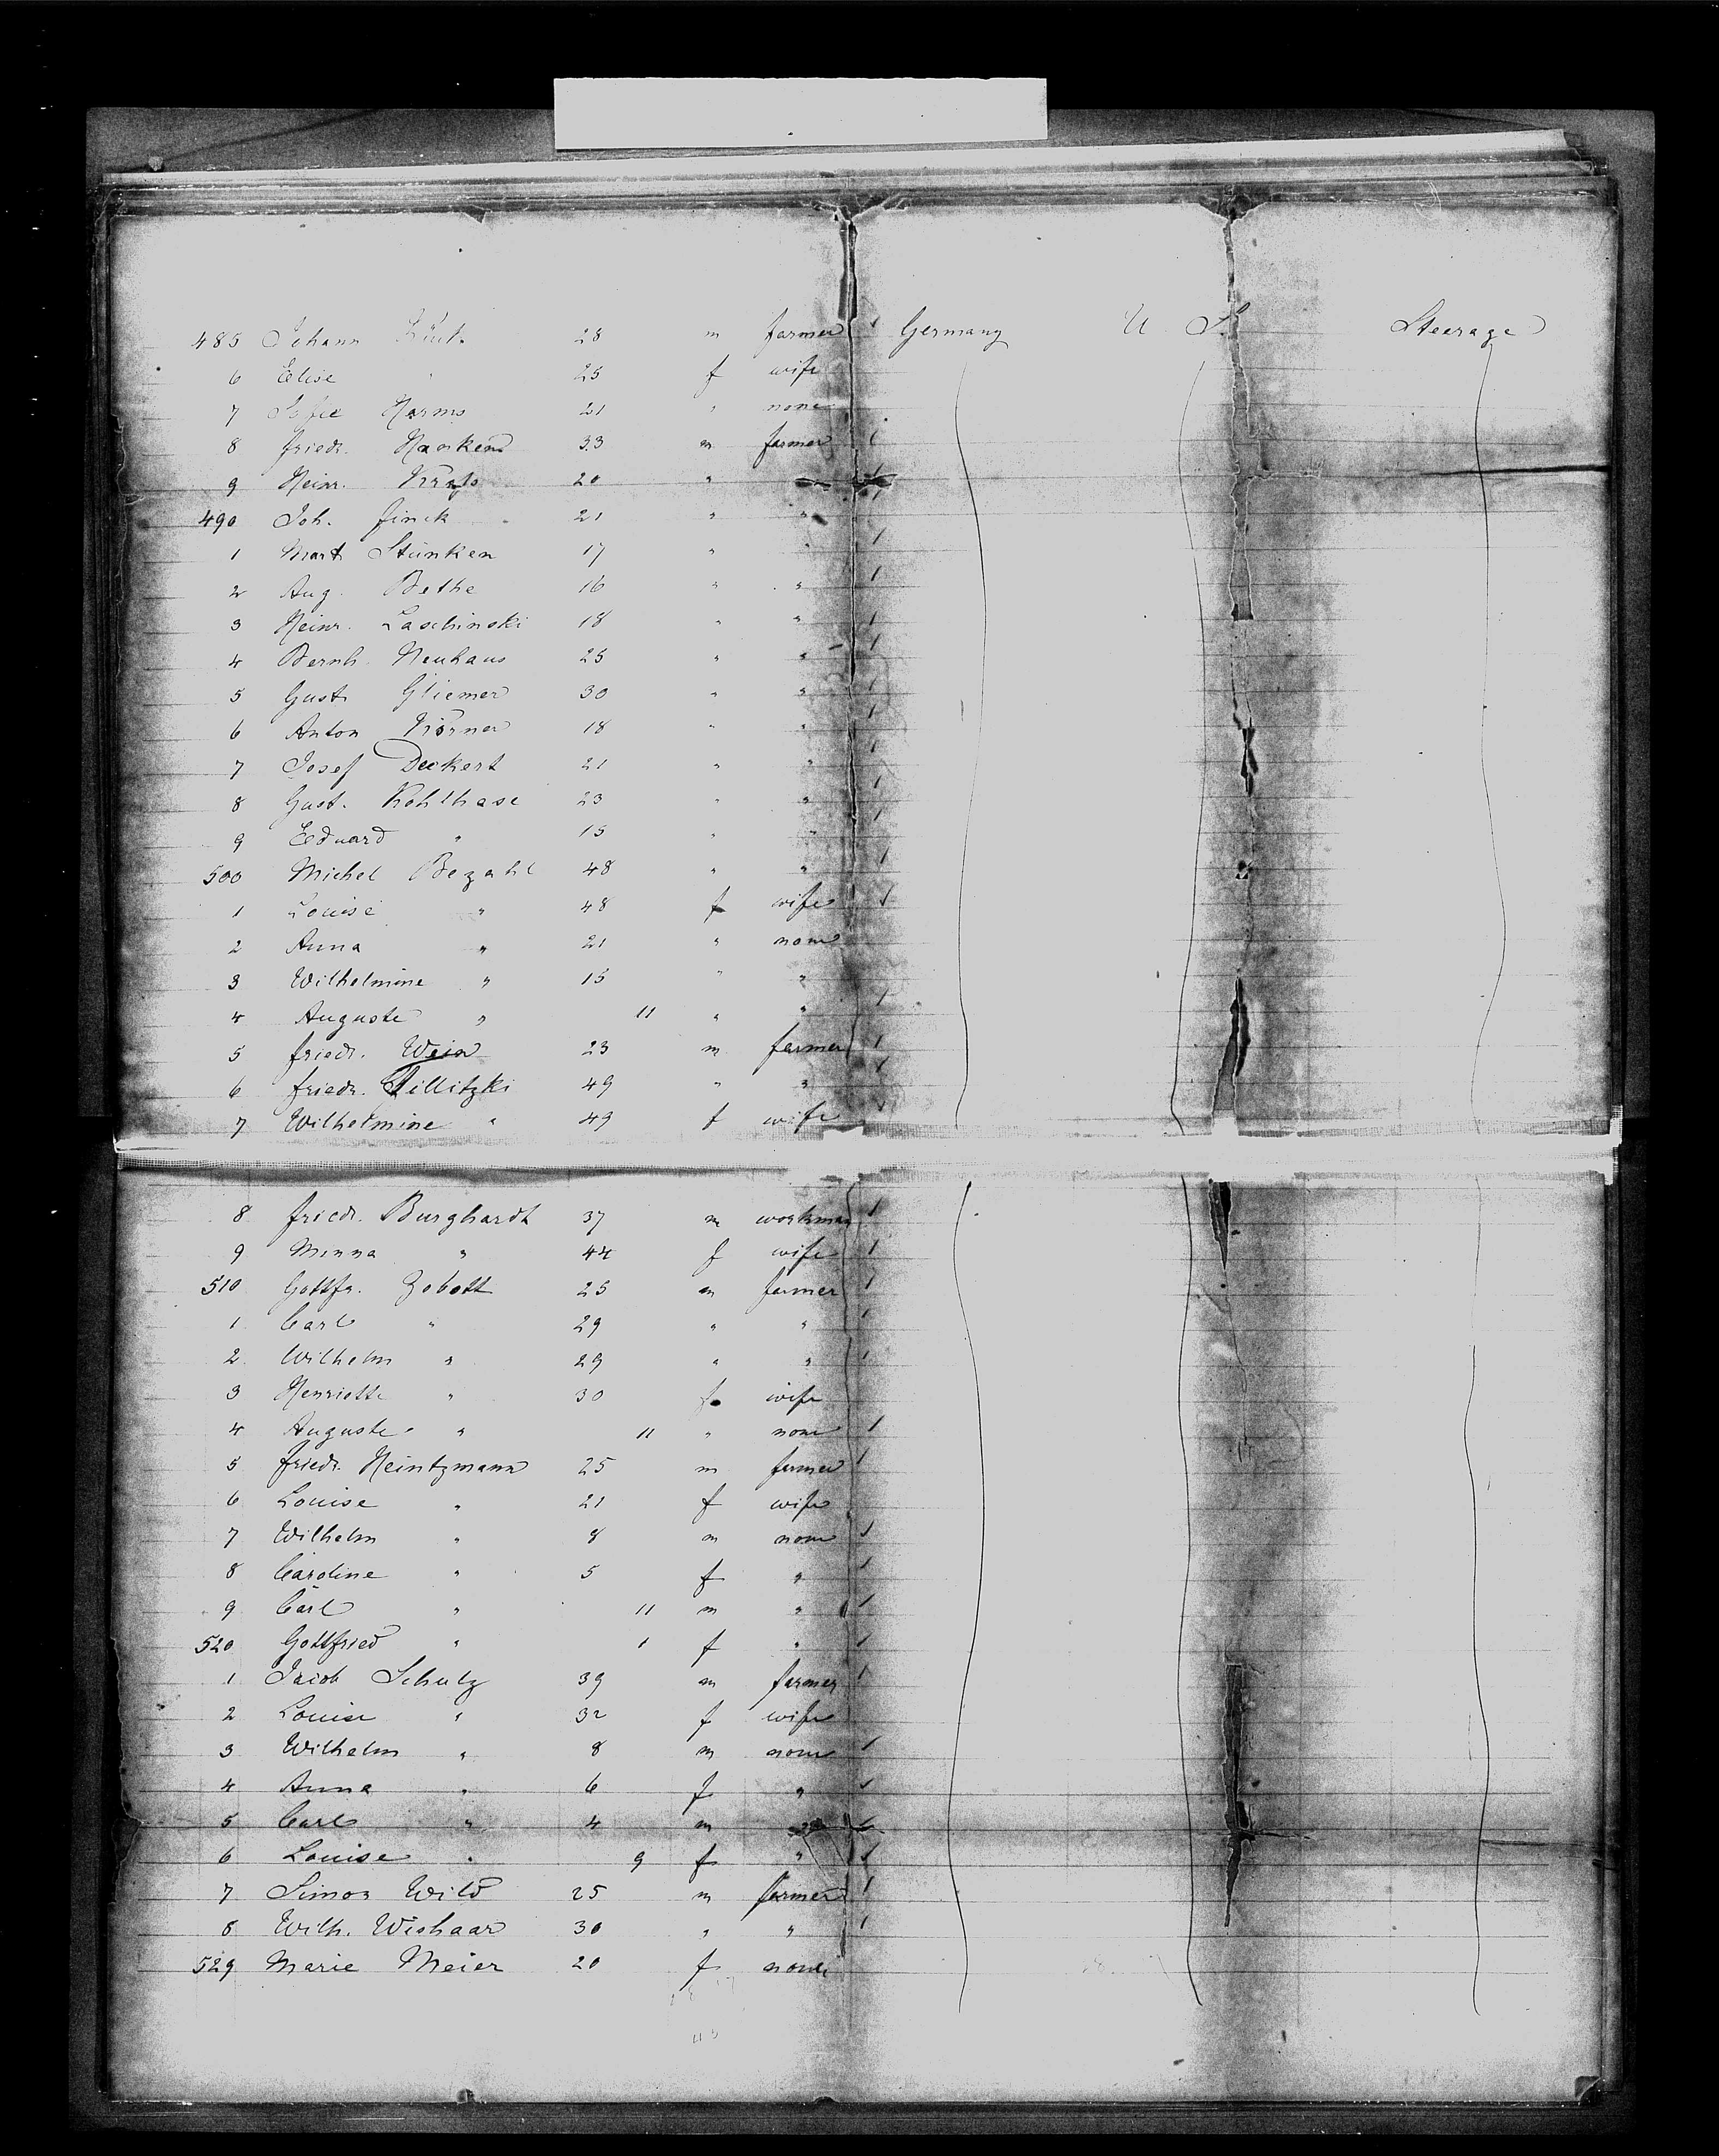 485 Johann 28 m farmer Germany U. S. Steerage
6 Elise " 25 f wife
7 Sofie Harms 21 " none
8 Friedr. Hanken 33 m farmer
9 Heinr. 20 " "
490 Joh. Finck 21 " "
1 Mart Stünken 17 " "
2 Aug. Bethe 16 " "
3 Heinr. Laschinski 18 " "
4 Bernh. Neuhaus 25 " "
5 Gust. Gliemer 30 " "
6 Anton Körner 18 " "
7 Josef Deckert 21 " "
8 Gust. Kohlhase 23 " "
9 Eduard " 15 " "
500 Michel Bezahl 48 " "
1 Louise " 48 f wife
2 Anna " 21 " none
3 Wilhelmine " 15 " "
4 Auguste " 11 " "
5 Friedr. Wein 23 m farmer
6 Friedr. Pillitzki 49 " "
7 Wilhelmine " 49 f wife
8 Friedr. Burghardt 37 m workman
9 Minna " 44 f wife
510 Gottfr. Zobott 25 m farmer
1 Carl " 29 " "
2 Wilhelm " 29 " "
3 Henriette " 30 f wife
4 Auguste " 11 " none
5 Friedr. Heintzmann 25 m farmer
6 Louise " 21 f wife
7 Wilhelm " 8 m none
8 Caroline " 5 f "
9 Carl " 11 m "
520 Gottfried " 1 f "
1 Jacob Schulz 39 m farmer
2 Louise " 32 f wife
3 Wilhelm " 8 m none
4 Anna " 6 f "
5 Carl " 4 m "
6 Louise " 9 f "
7 Simon Wild 25 m farmer
8 Wilh. Wishaar 30 " "
529 Marie Meier 20 f none